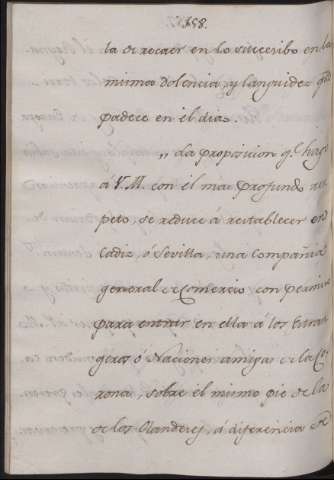 158.
ta de recaer en lo succesibo en la
misma dolencia, y languidez qe
padece en el dia.
„ La proposicion qe hago
á V.M. con el mas profundo res
peto, se reduce á restablecer en
Cadiz, ó Sevilla, una Compañia
general de Comercio con permiso
para entrar en ella á los Estran
geros ó Naciones amigas de la Co
rona, sobre el mismo pie de la
de los Olandeses, á diferencia de